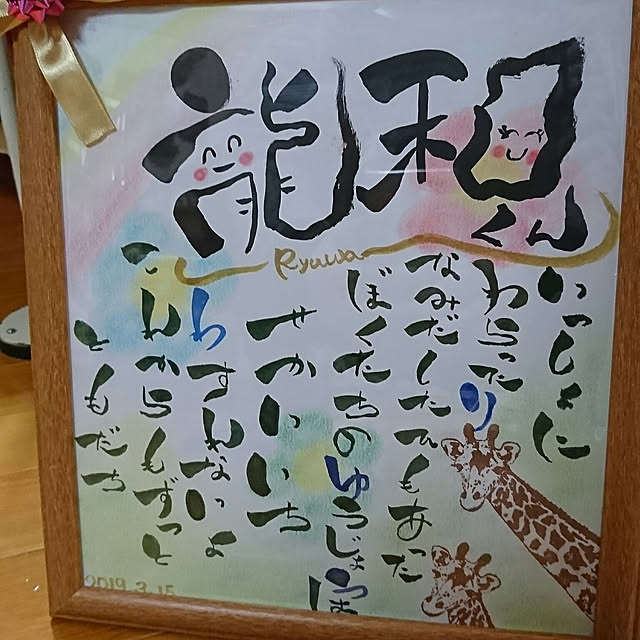 龍和くん
Ryuwa
いっしょに
わらったり
なみだしたひもあった
ぼくたちのゆうじょうは
せかいいち
わすれないよ
これからもずっと
ともだち
2019.3.15